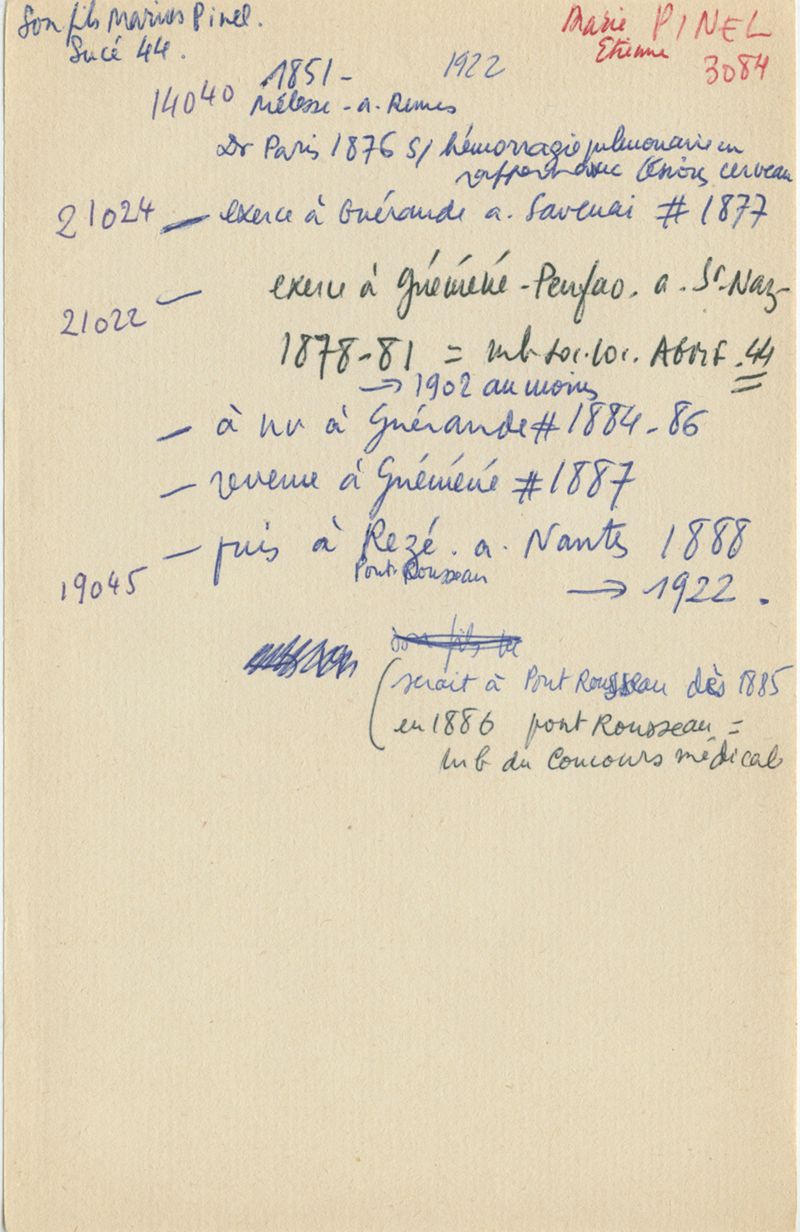 Son fils Marius Pinel.
Sucé 44.
Marie PINEL
Etienne
3084
1851- 1922
14040 Mélesse - a. Rennes
Dr Paris 1876 S/ hémorragie pulmonaire en
rapport avec lésions cerveau
21024 - exerce à Guérande a. Savenai # 1877
- exerce à Guéméné-Penfao. a. St. Naz-
21022
1878-81 = mb soc. loc. Abrf. 44
→ 1902 au moins
- à nv à Guérande # 1884-86
- revenu à Guéméné # 1887
- puis à Rezé. a. Nantes 1888
Pont-Rousseau
19045 → 1922.
son fils
(serait à Pont Rousseau dès 1885
en 1886 pont Rousseau =
mb du Concours médical